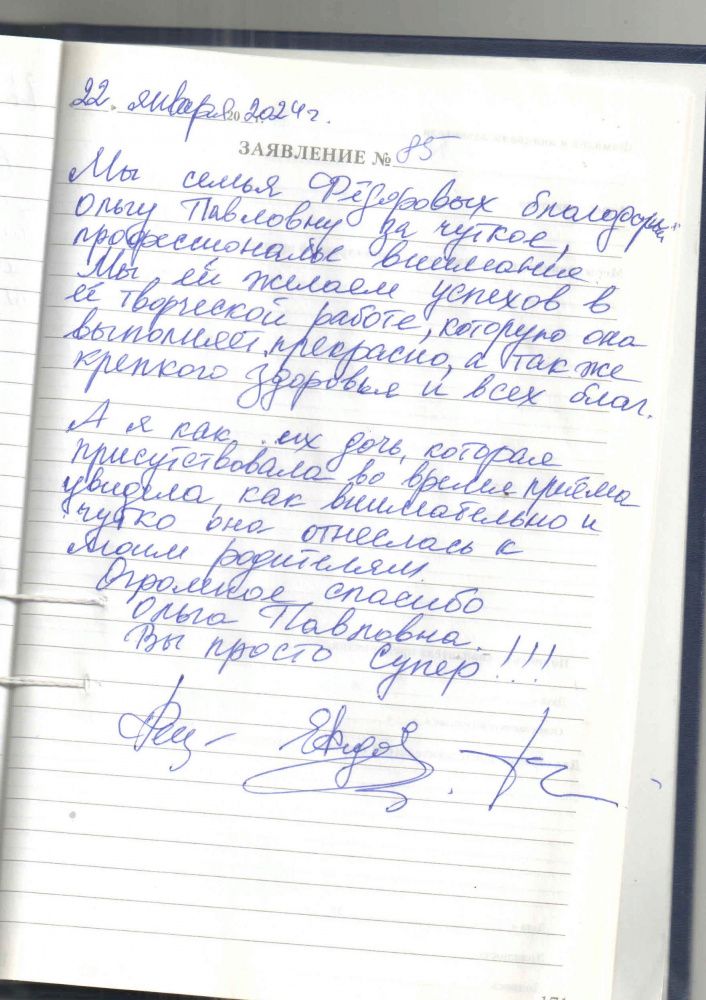 22. января 2024г.
ЗАЯВЛЕНИЕ № 85
Мы семья Фёдоровых благодарим
Ольгу Павловну за чуткое,
професcиональе внимание.
Мы ей желаем успехов в
её творческой работе, которую она
выполняет прекрасно, а так же
крепкого здоровья и всех благ.
А я как их дочь, которая
присутствовала во время приёма
увидела, как внимательно и
чутко она отнеслась к
моим родителям.
Огромное спасибо
Ольга Павловна.
Вы просто Супер!!!